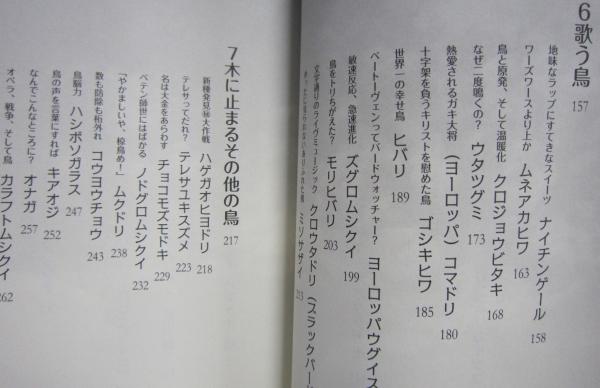 6歌う鳥 157
地味なラップにすてきなスイーツ ナイチンゲール 158
ワーズワースより上か ムネアカヒワ 163
鳥と原発、そして温暖化 クロジョウビタキ 168
なぜ二度鳴くの? ウタツグミ 173
熱愛されるガキ大将 (ヨーロッパ)コマドリ 180
十字架を負うキリストを慰めた鳥 ゴシキヒワ 185
世界一の幸せ鳥 ヒバリ 189
ベートーヴェンってバードウォッチャー? ヨーロッパウグイス
敏速反応、急速進化 ズグロムシクイ 199
鳥をトリちがえた? モリヒバリ 203
文字通りのライヴミュージック クロウタドリ(ブラックバード
ミソサザイ 213
7木に止まるその他の鳥 217
新種発見㊙大作戦 ハゲガオヒヨドリ 218
テレサってだれ? テレサユキスズメ 223
名は大金をあらわす チョコモズモドキ 229
ペテン師世にはばかる ノドグロムシクイ 232
「やかましいや、椋鳥め!」 ムクドリ 238
数も防除も桁外れ コウヨウチョウ 243
鳥脳力 ハシボソガラス 247
鳥の声を言葉にすれば キアオジ 252
なんでこんなところに? オナガ 257
オペラ、戦争、そして鳥 カラフトムシクイ 262